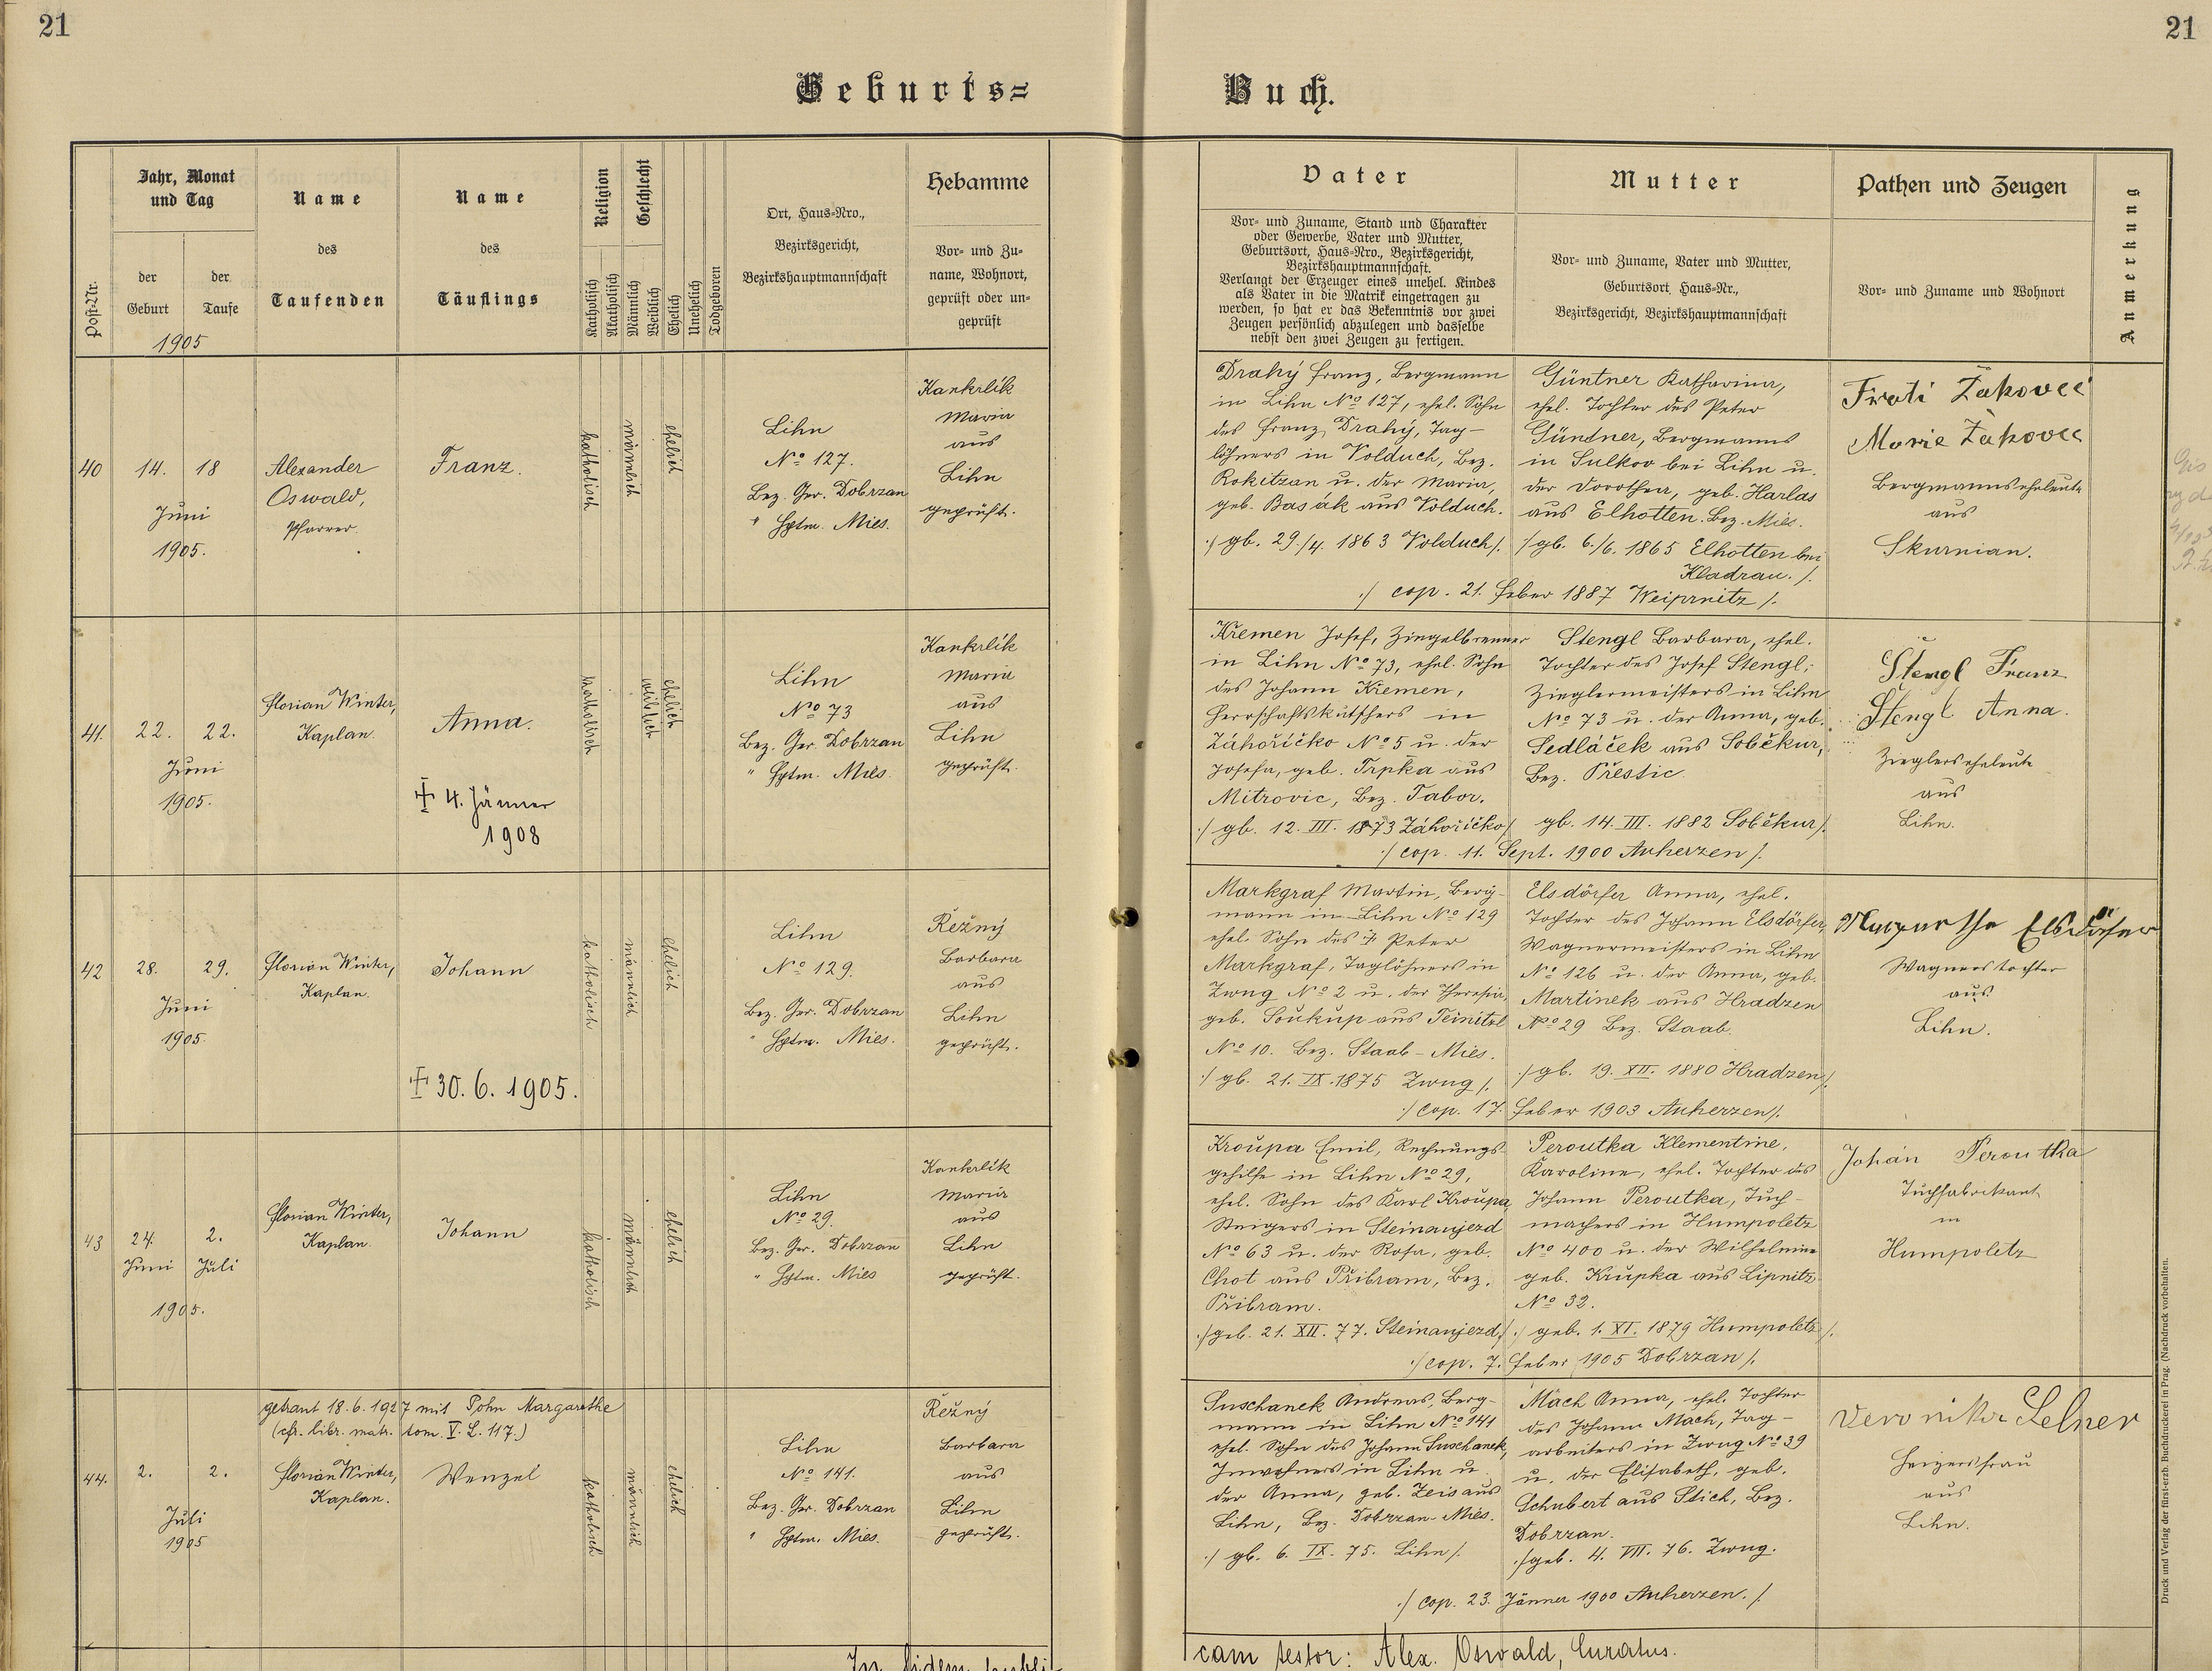 21
21
Geburts=
Buch.
Post-Nr.
Jahr, Monat
und Tag
der
Geburt
der
Taufe
1905
Name
des
Taufenden
Name
des
Täuflings
Religion
Katholisch
Akatholisch
Geschlecht
Männlich
Weiblich
Ehelich
Unehelich
Todgeboren
Ort, Haus-Nro.,
Bezirksgericht,
Bezirkshauptmannschaft
Hebamme
Vor- und Zu-
name, Wohnort,
geprüft oder un-
geprüft
Vater
Vor- und Zuname, Stand und Charakter
oder Gewerbe, Vater und Mutter,
Geburtsort, Haus-Nro., Bezirksgericht,
Bezirkshauptmannschaft.
Verlangt der Erzeuger eines unehel. Kindes
als Vater in die Matrik eingetragen zu
werden, so hat er das Bekenntnis vor zwei
Zeugen persönlich abzulegen und dasselbe
nebst den zwei Zeugen zu fertigen.
Mutter
Vor- und Zuname, Vater und Mutter,
Geburtsort, Haus-Nr.,
Bezirksgericht, Bezirkshauptmannschaft
Pathen und Zeugen
Vor- und Zuname und Wohnort
Anmerkung
40
14. 18
Juni
1905.
Alexander
Oswald,
Pfarrer.
Franz.
katholisch
männlich
ehelich
Lihn
No 127.
Bez. Ger. Dobrzan
" Hptm. Mies.
Kankrlík
Maria
aus
Lihn
geprüft.
Drahý Franz, Bergmann
in Lihn No 127, ehel. Sohn
des Franz Drahý, Tag-
löhners in Volduch, Bez.
Rokitzan u. der Maria,
geb. Basák aus Volduch.
./ gb. 29./4. 1863 Volduch /.
Güntner Katharina,
ehel. Tochter des Peter
Güntner, Bergmanns
in Sulkov bei Lihn u.
der Dorothea, geb. Harlas
aus Elhotten. Bez. Mies.
./ gb. 6./6. 1865 Elhotten bei
Kladrau. /.
./ cop. 21. Feber 1887 Weiprnitz /.
Marie
Bergmannseheleute
aus
Skurnian.
41.
22. 22.
Juni
1905.
Florian Winter,
Kaplan.
Anna.
† 4. Jänner
1908
katholisch
weiblich
ehelich
Lihn
No 73
Bez. Ger. Dobrzan
" Hptm. Mies.
Kankrlík
Maria
aus
Lihn
geprüft.
Křemen Josef, Ziegelbrenner
in Lihn No 73, ehel. Sohn
des Johann Křemen,
Herrschaftskutschers in
Záhoříčko No 5 u. der
Josefa, geb. Trpka aus
Mitrovic, Bez. Tabor.
./ gb. 12. III. 1873 Záhoříčko /.
Stengl Barbara, ehel.
Tochter des Josef Stengl,
Zieglermeisters in Lihn
No 73 u. der Anna, geb.
Sedláček aus Soběkur,
Bez. Přestic.
gb. 14. III. 1882 Soběkur /.
./ cop. 11. Sept. 1900 Auherzen /.
Stengl Franz
Stengl Anna.
Zieglerseheleute
aus
Lihn.
42
28. 29.
Juni
1905.
Florian Winter,
Kaplan.
Johann
† 30. 6. 1905.
katholisch
männlich
ehelich
Lihn
No 129.
Bez. Ger. Dobrzan
" Hptm. Mies.
Řežný
Barbara
aus
Lihn
geprüft.
Markgraf Martin, Berg-
mann in Lihn No 129
ehel. Sohn des † Peter
Markgraf, Taglöhners in
Zwug No 2 u. der Theresia,
geb. Soukup aus Teinitzl
No 10. Bez. Staab - Mies.
./ gb. 21. IX. 1875 Zwug /.
Elsdörfer Anna, ehel.
Tochter des Johann Elsdörfer,
Wagnermeisters in Lihn
No 126 u. der Anna, geb.
Martínek aus Hradzen
No 29 Bez. Staab.
./ gb. 19. XII. 1880 Hradzen /.
./ cop. 17. Feber 1903 Auherzen /.
Margarethe Elsdörfer
Wagnerstochter
aus
Lihn.
43
24. 2.
Juni Juli
1905.
Florian Winter,
Kaplan.
Johann
katholisch
männlich
ehelich
Lihn
No 29.
Bez. Ger. Dobrzan
" Hptm. Mies
Kankrlík
Maria
aus
Lihn
geprüft.
Kroupa Emil, Rechnungs-
gehilfe in Lihn No 29,
ehel. Sohn des Karl Kroupa,
Steigers in Steinaujezd
No 63 u. der Rosa, geb.
Chot aus Přibram, Bez.
Přibram.
./ geb. 21. XII. 77. Steinaujezd /.
Peroutka Klementine,
Karoline, ehel. Tochter des
Johann Peroutka, Tuch-
machers in Humpoletz
No 400 u. der Wilhelmine
geb. Krupka aus Lipnitz
No 32.
./ geb. 1. XI. 1879 Humpoletz /.
./ cop. 7. Feber 1905 Dobrzan /.
Johan Peroutka
Tuchfabrikant
in
Humpoletz
44.
2. 2.
Juli
1905
getraut 18. 6. 1927 mit Pohn Margarethe
(cfr. libr. matr. tom. V. L. 117.)
Florian Winter,
Kaplan.
Wenzel
katholisch
männlich
ehelich
Lihn
No 141.
Bez. Ger. Dobrzan
" Hptm. Mies.
Řežný
Barbara
aus
Lihn
geprüft.
Suschanek Andreas, Berg-
mann in Lihn No 141
ehel. Sohn des Johann Suschanek,
Inwohners in Lihn u.
der Anna, geb. Zeis aus
Lihn, Bez. Dobrzan - Mies.
./ gb. 6. IX. 75. Lihn /.
Mach Anna, ehel. Tochter
des Johann Mach, Tag-
arbeiters in Zwug No 39
u. der Elisabeth, geb.
Schubert aus Stich, Bez.
Dobrzan.
./ geb. 4. VII. 76. Zwug.
./ cop. 23. Jänner 1900 Auherzen. /.
Veronika Lelner
Heizersfrau
aus
Lihn.
In fidem publi-
cam testor: Alex. Oswald, Curatus.
Druck und Verlag der fürst-erzb. Buchdruckerei in Prag. (Nachdruck vorbehalten.